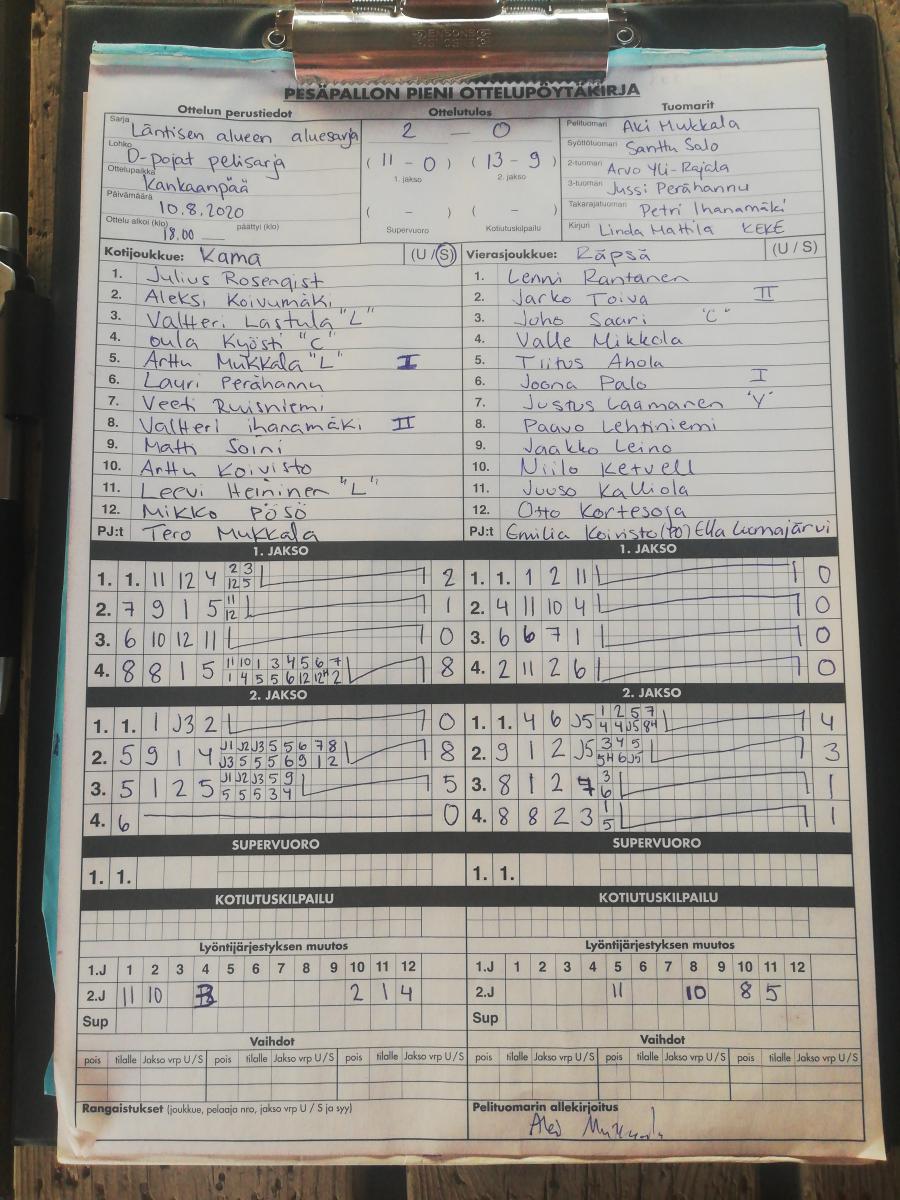 PESÄPALLON PIENI OTTELUPÖYTÄKIRJA
Ottelun perustiedot
Sarja Läntisen alueen aluesarja
Lohko D-pojat pelisarja
Ottelupaikka Kankaanpää
Päivämäärä 10.8.2020
Ottelu alkoi (klo) 18.00 päättyi (klo)
Ottelutulos
2 — 0
(11 - 0) (13 - 9)
1. jakso 2. jakso
( - ) ( - )
Supervuoro Kotiutuskilpailu
Tuomarit
Pelituomari Aki Mukkala
Syöttötuomari Santtu Salo
2-tuomari Arvo Yli-Rajala
3-tuomari Jussi Perähannu
Takarajatuomari Petri Ihanamäki
Kirjuri Linda Mattila KEKE
Kotijoukkue: Kama (U / S)
1. Julius Rosenqist
2. Aleksi Koivumäki
3. Valtteri Lastula "L"
4. Oula Kyösti "C"
5. Arttu Mukkala "L" I
6. Lauri Perähannu
7. Veeti Ruisniemi
8. Valtteri ihanamäki II
9. Matti Soini
10. Arttu Koivisto
11. Leevi Heininen "L"
12. Mikko Pösö
PJ:t Tero Mukkala
Vierasjoukkue: Räpsä (U / S)
1. Lenni Rantanen
2. Jarko Toiva II
3. Joho Saari "C"
4. Valle Mikkola
5. Tiitus Ahola
6. Joona Palo I
7. Justus Laamanen "Y"
8. Paavo Lehtiniemi
9. Jaakko Leino
10. Niilo Ketvell
11. Juuso Kalliola
12. Otto Kortesoja
PJ:t Emilia Koivisto (po) Ella Luomajärvi
1. JAKSO
1. 1. 11 12 4 2 3 2
12 5
2. 7 9 1 5 11 1
12
3. 6 10 12 11 0
4. 8 8 1 5 11 10 1 3 4 5 6 7 8
1 4 5 5 6 12 12H 2
1. JAKSO
1. 1. 1 2 11 0
2. 4 11 10 4 0
3. 6 6 7 1 0
4. 2 11 2 6 0
2. JAKSO
1. 1. 1 J3 2 0
2. 5 9 1 4 J1 J2 J3 5 5 6 7 8 8
J3 5 5 5 6 9 1 2
3. 5 1 2 5 J1 J2 J3 5 9 5
5 5 5 3 4
4. 6 0
2. JAKSO
1. 1. 4 6 J5 1 2 5 7 4
4 4 J5 8H
2. 9 1 2 J5 3 4 5 3
5H 6 J5
3. 8 1 2 7 3 1
6
4. 8 8 2 3 1 1
5
SUPERVUORO
1. 1.
SUPERVUORO
1. 1.
KOTIUTUSKILPAILU
KOTIUTUSKILPAILU
Lyöntijärjestyksen muutos
1.J 1 2 3 4 5 6 7 8 9 10 11 12
2.J 11 10 2 1 4
Sup
Lyöntijärjestyksen muutos
1.J 1 2 3 4 5 6 7 8 9 10 11 12
2.J 11 10 8 5
Sup
Vaihdot
pois tilalle Jakso vrp U / S pois tilalle Jakso vrp U / S pois tilalle Jakso vrp U / S
Vaihdot
pois tilalle Jakso vrp U / S pois tilalle Jakso vrp U / S pois tilalle Jakso vrp U / S
Rangaistukset (joukkue, pelaaja nro, jakso vrp U / S ja syy)
Pelituomarin allekirjoitus